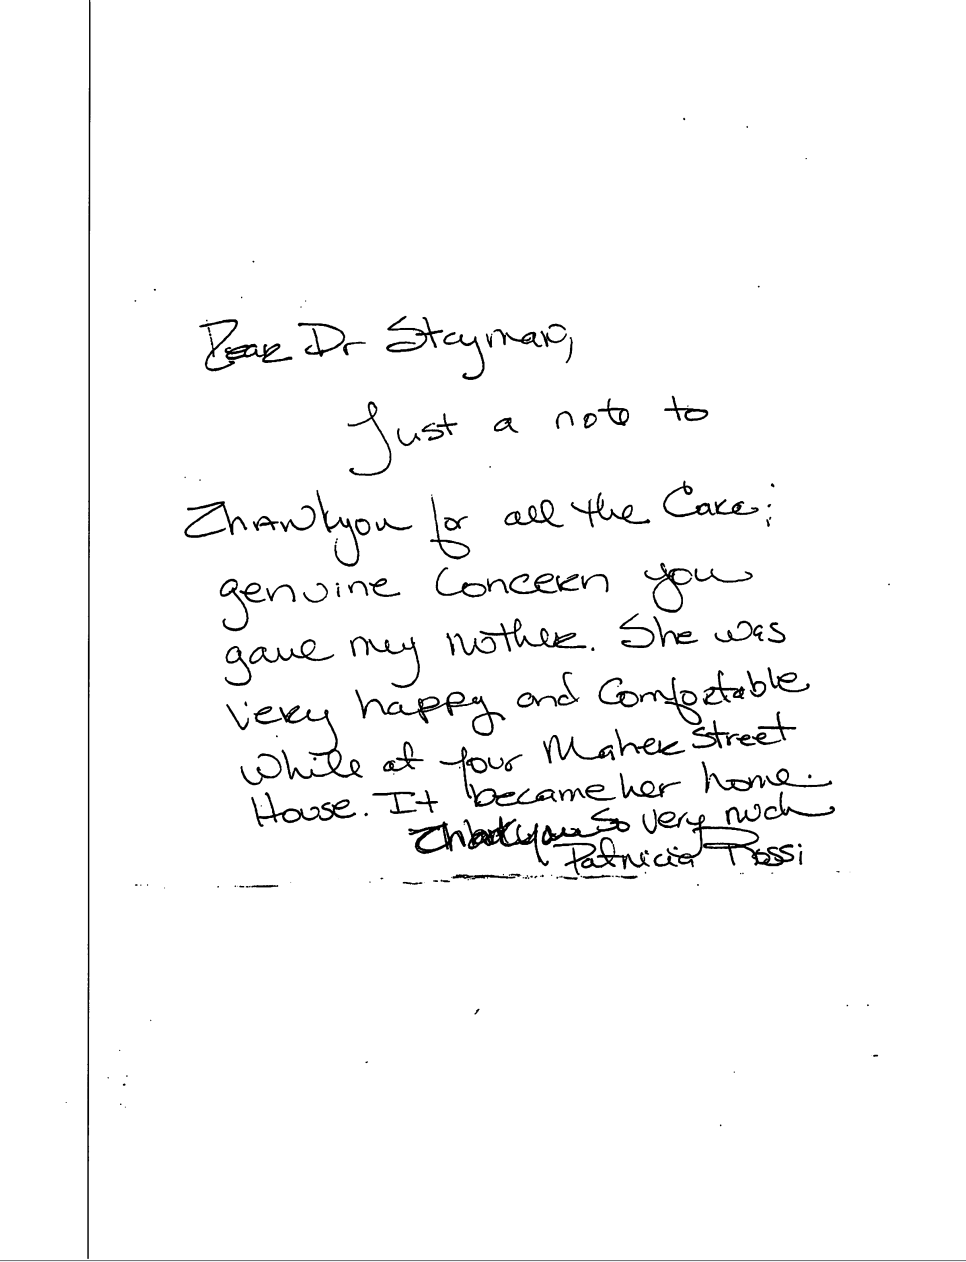 Dear Dr Stayman,
Just a note to
Thankyou for all the Care;
genuine Concern you
gave my mother. She was
very happy and Comfortable
While at your Maher Street
House. It became her home.
Thankyou So very much
Patricia Rossi